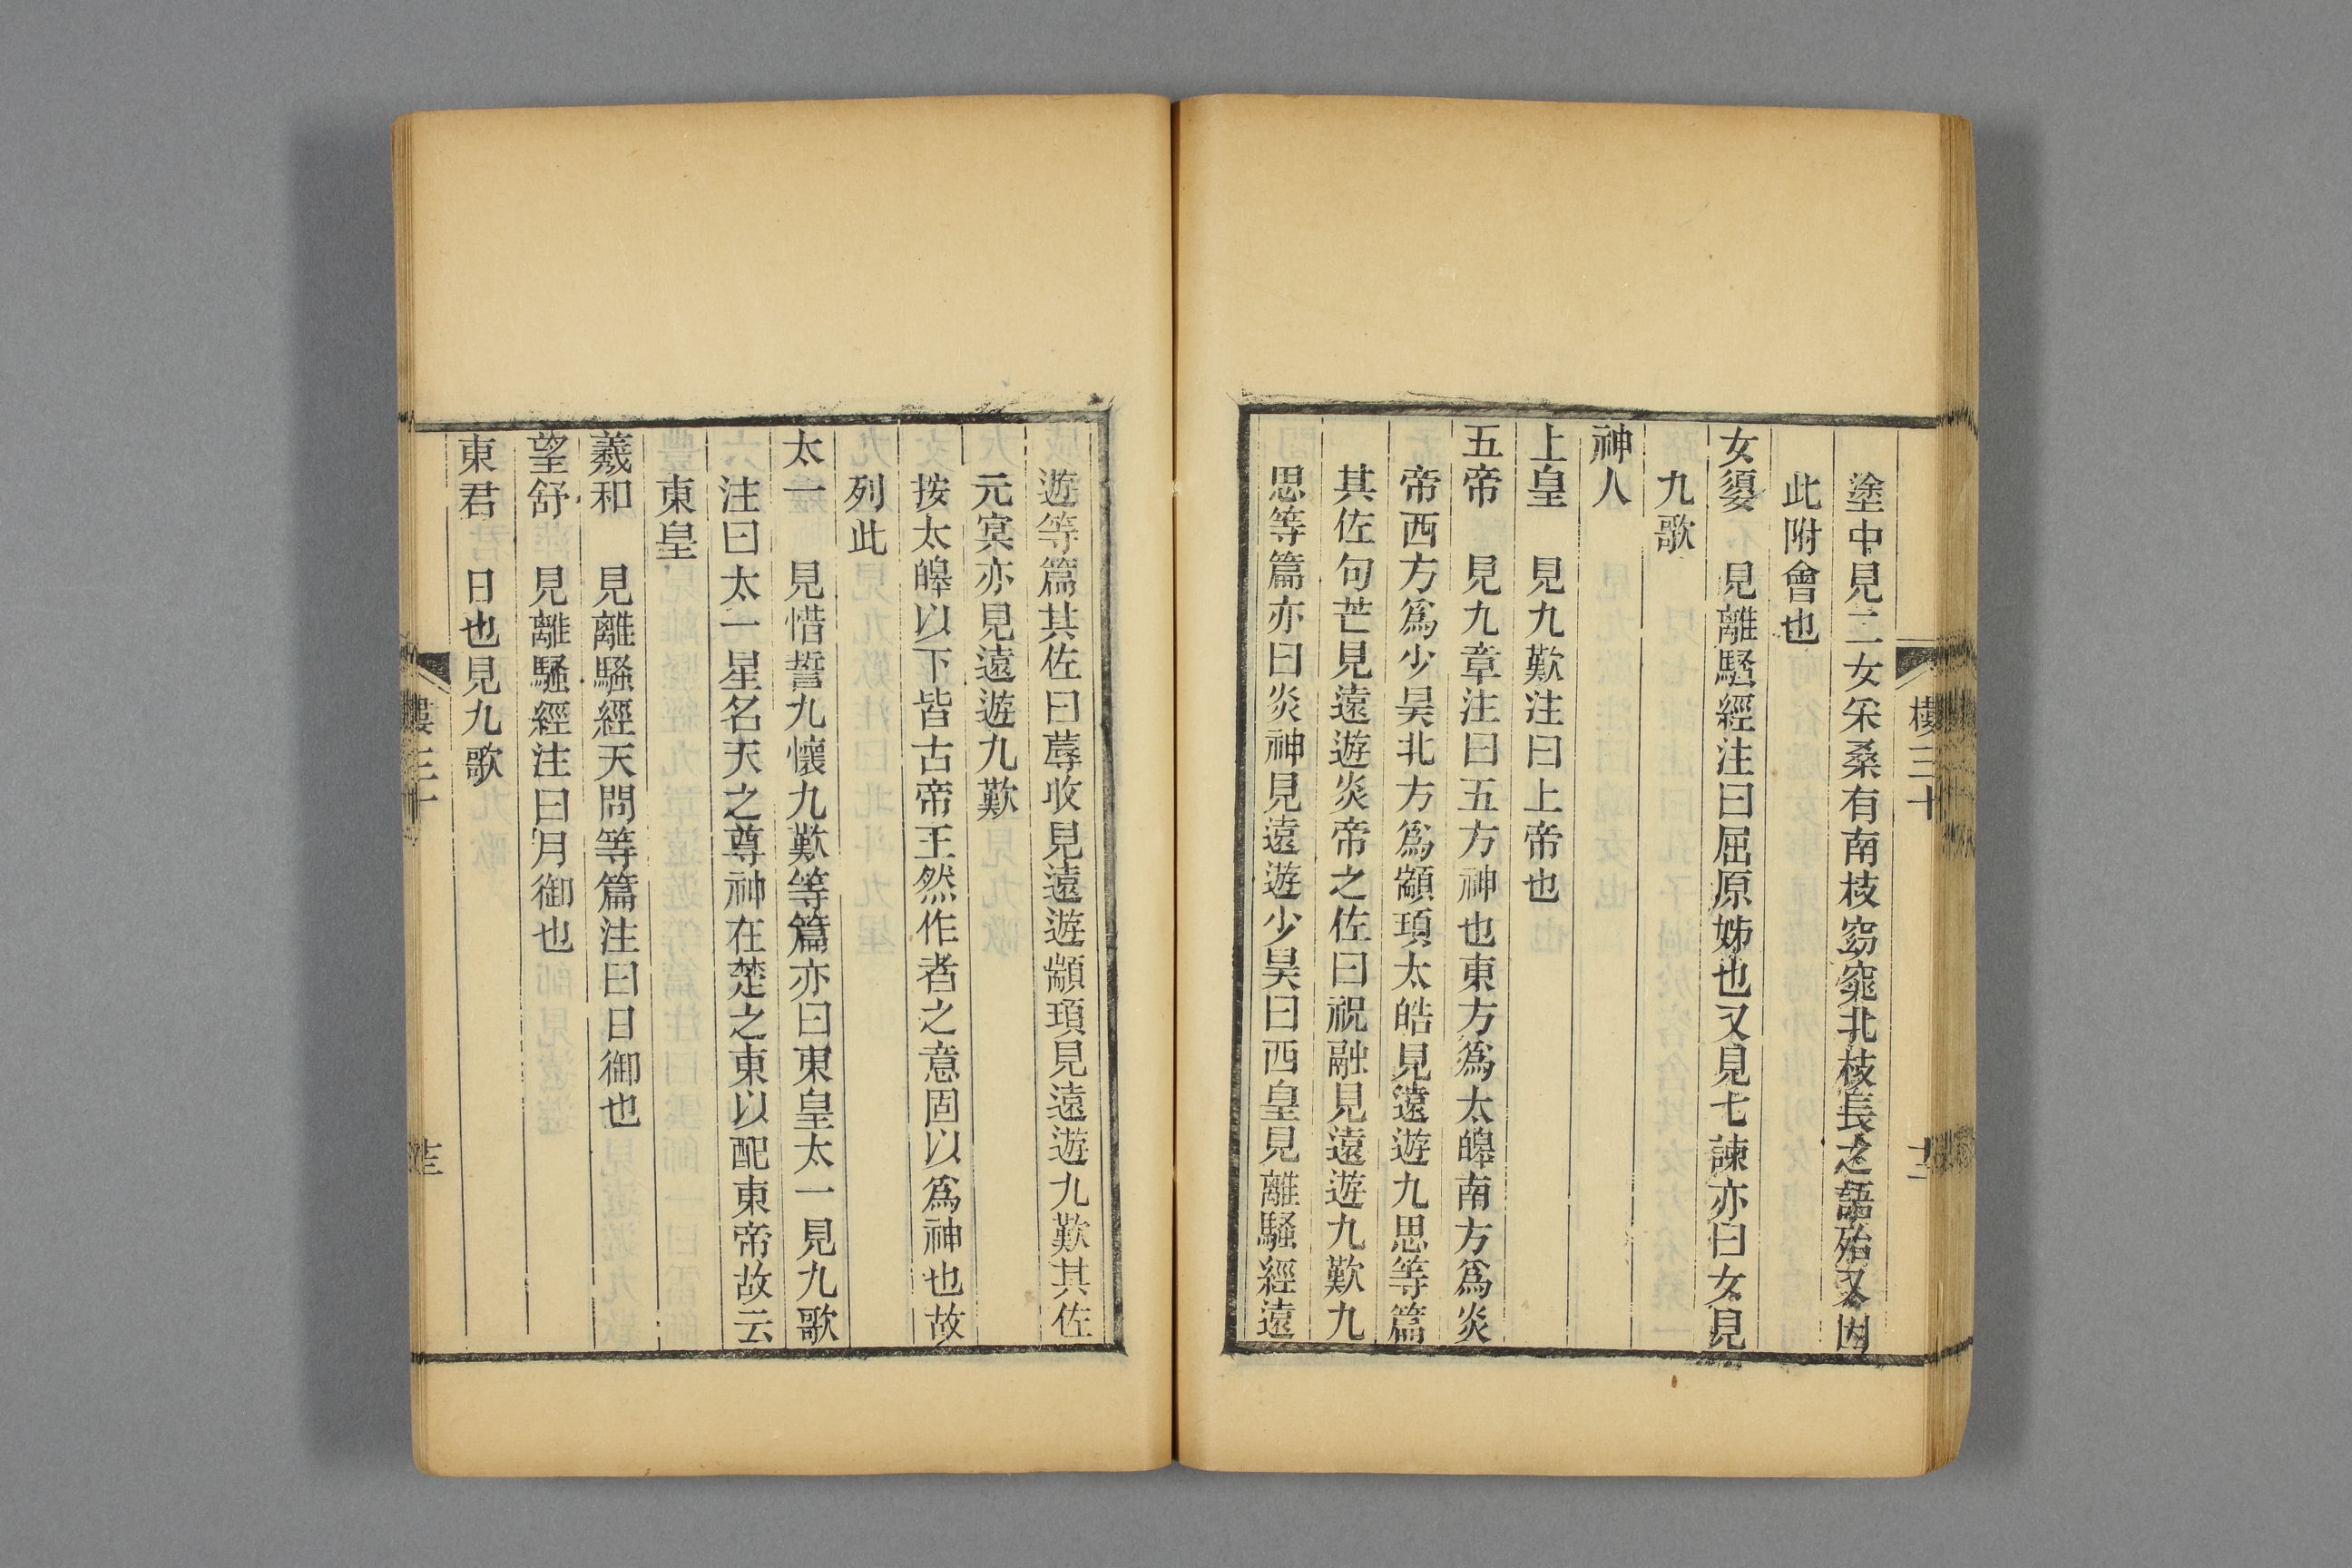 塗中見二女采桑有南枝窈窕北枝長之語殆又因
此附會也
女嬃　見離騷經注曰屈原姊也又見七諫亦曰女見
九歌
神人
上皇　見九歎注曰上帝也
五帝　見九章注曰五方神也東方爲太皞南方爲炎
帝西方爲少昊北方爲顓頊太皓見遠遊九思等篇
其佐句芒見遠遊炎帝之佐曰祝融見遠遊九歎九
思等篇亦曰炎神見遠遊少昊曰西皇見離騷經遠
遊等篇其佐曰蓐收見遠遊顓頊見遠遊九歎其佐
元冥亦見遠遊九歎
按太皞以下皆古帝王然作者之意固以爲神也故
列此
太一　見惜誓九懷九歎等篇亦曰東皇太一見九歌
注曰太一星名天之尊神在楚之東以配東帝故云
東皇
羲和　見離騷經天問等篇注曰日御也
望舒　見離騷經注曰月御也
東君　日也見九歌